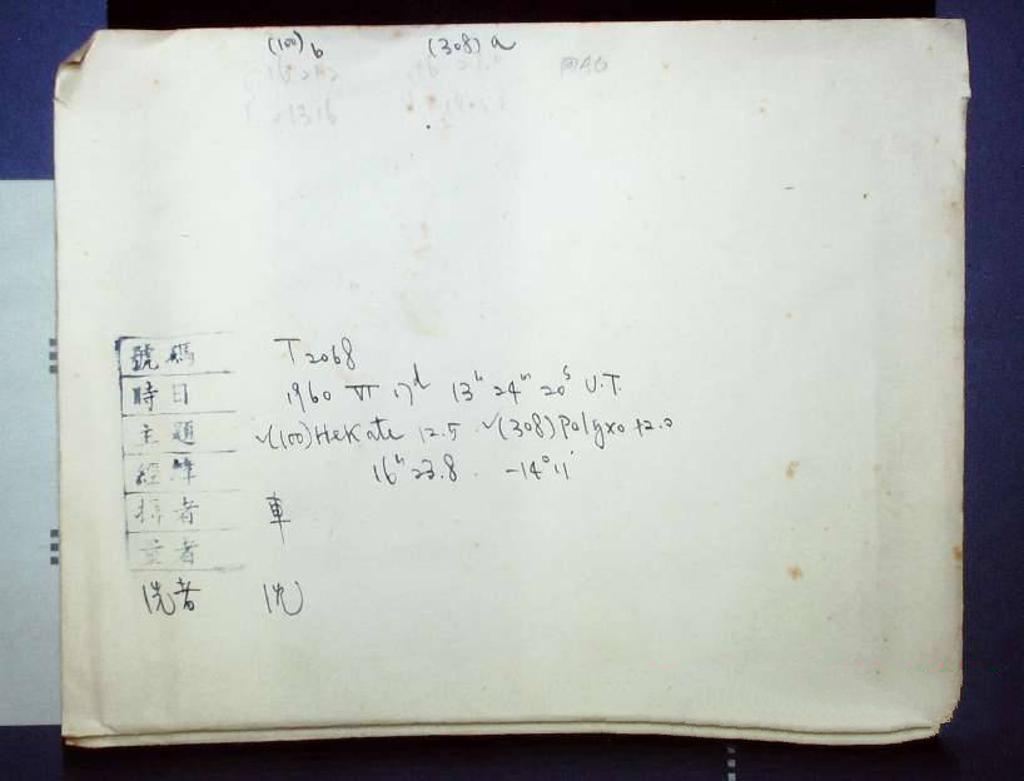 (100) b (308) a
號碼 T2068
時日 1960 VI 17d 13h 24m 20s U.T.
主題 √(100)HeKate 12.5 √(308)Polyxo +2.0
經緯 16h 23.8 -14°11'
攝者 車
量者
洗者 沈